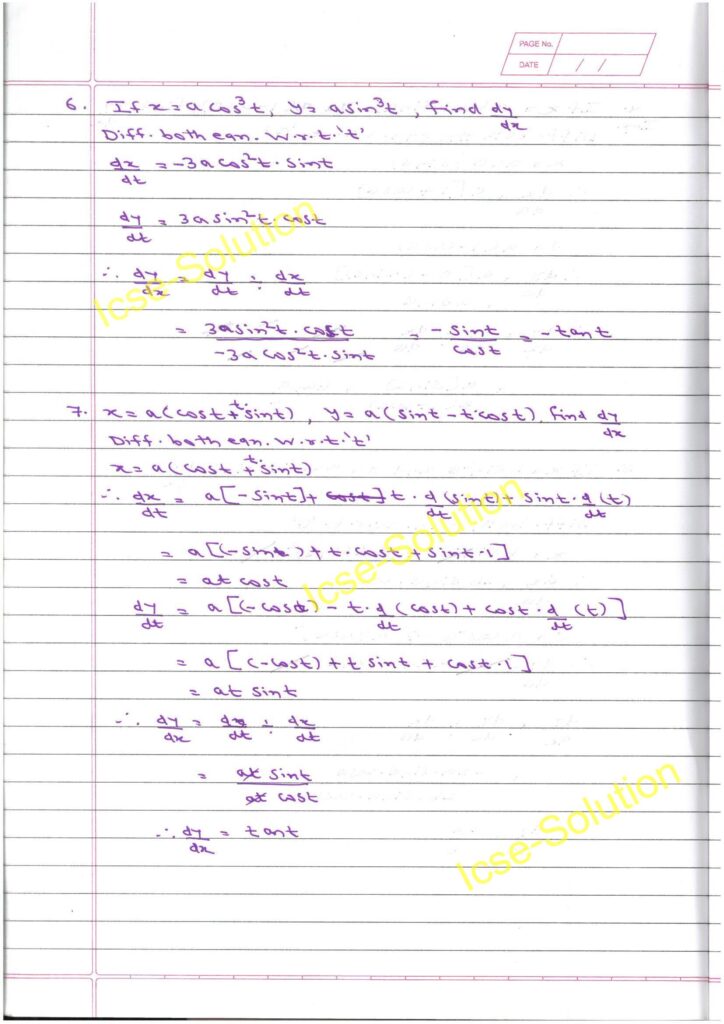 PAGE No.
DATE / /
6. If x = a cos³t, y = a sin³t, find dy/dx
Diff. both eqn. w.r.t. 't'
dx/dt = -3a cos²t · sint
dy/dt = 3a sin²t · cost
∴ dy/dx = dy/dt ÷ dx/dt
= 3a sin²t · cost / -3a cos²t · sint = -sint/cost = -tant
7. x = a(cost + t·sint), y = a(sint - t·cost), find dy/dx
Diff. both eqn. w.r.t. 't'
x = a(cost + t·sint)
∴ dx/dt = a[-sint] + t · d/dt (sint) + sint · d/dt (t)
= a[(-sint) + t·cost + sint·1]
= at cost
dy/dt = a[(-cost) - t · d/dt (cost) + cost · d/dt (t)]
= a[(-cost) + t sint + cost·1]
= at sint
∴ dy/dx = dx/dt ÷ dx/dt
= at sint / at cost
∴ dy/dx = tant
Icse-Solution
Icse-Solution
Icse-Solution